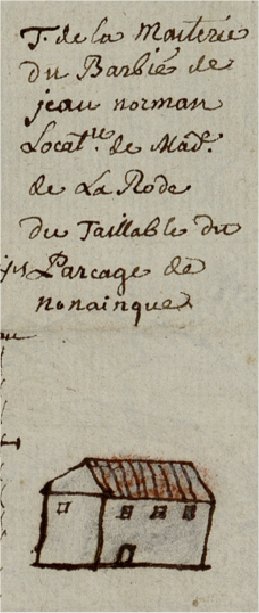 T. de la Maiterie
du Barbié de
jeau norman
Locat.re de Mad.e
de La Rode
du Taillable du
Parcage de
nonainques